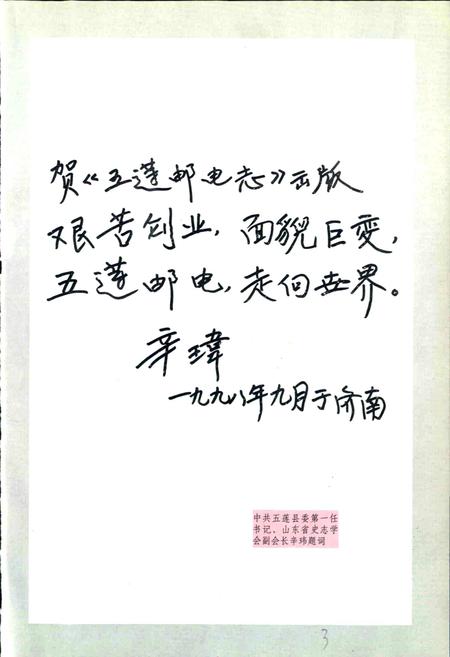 贺《五莲邮电志》出版
艰苦创业，面貌巨变，
五莲邮电，走向世界。
辛玮
一九九八年九月于济南
中共五莲县委第一任
书记、山东省史志学
会副会长辛玮题词
3